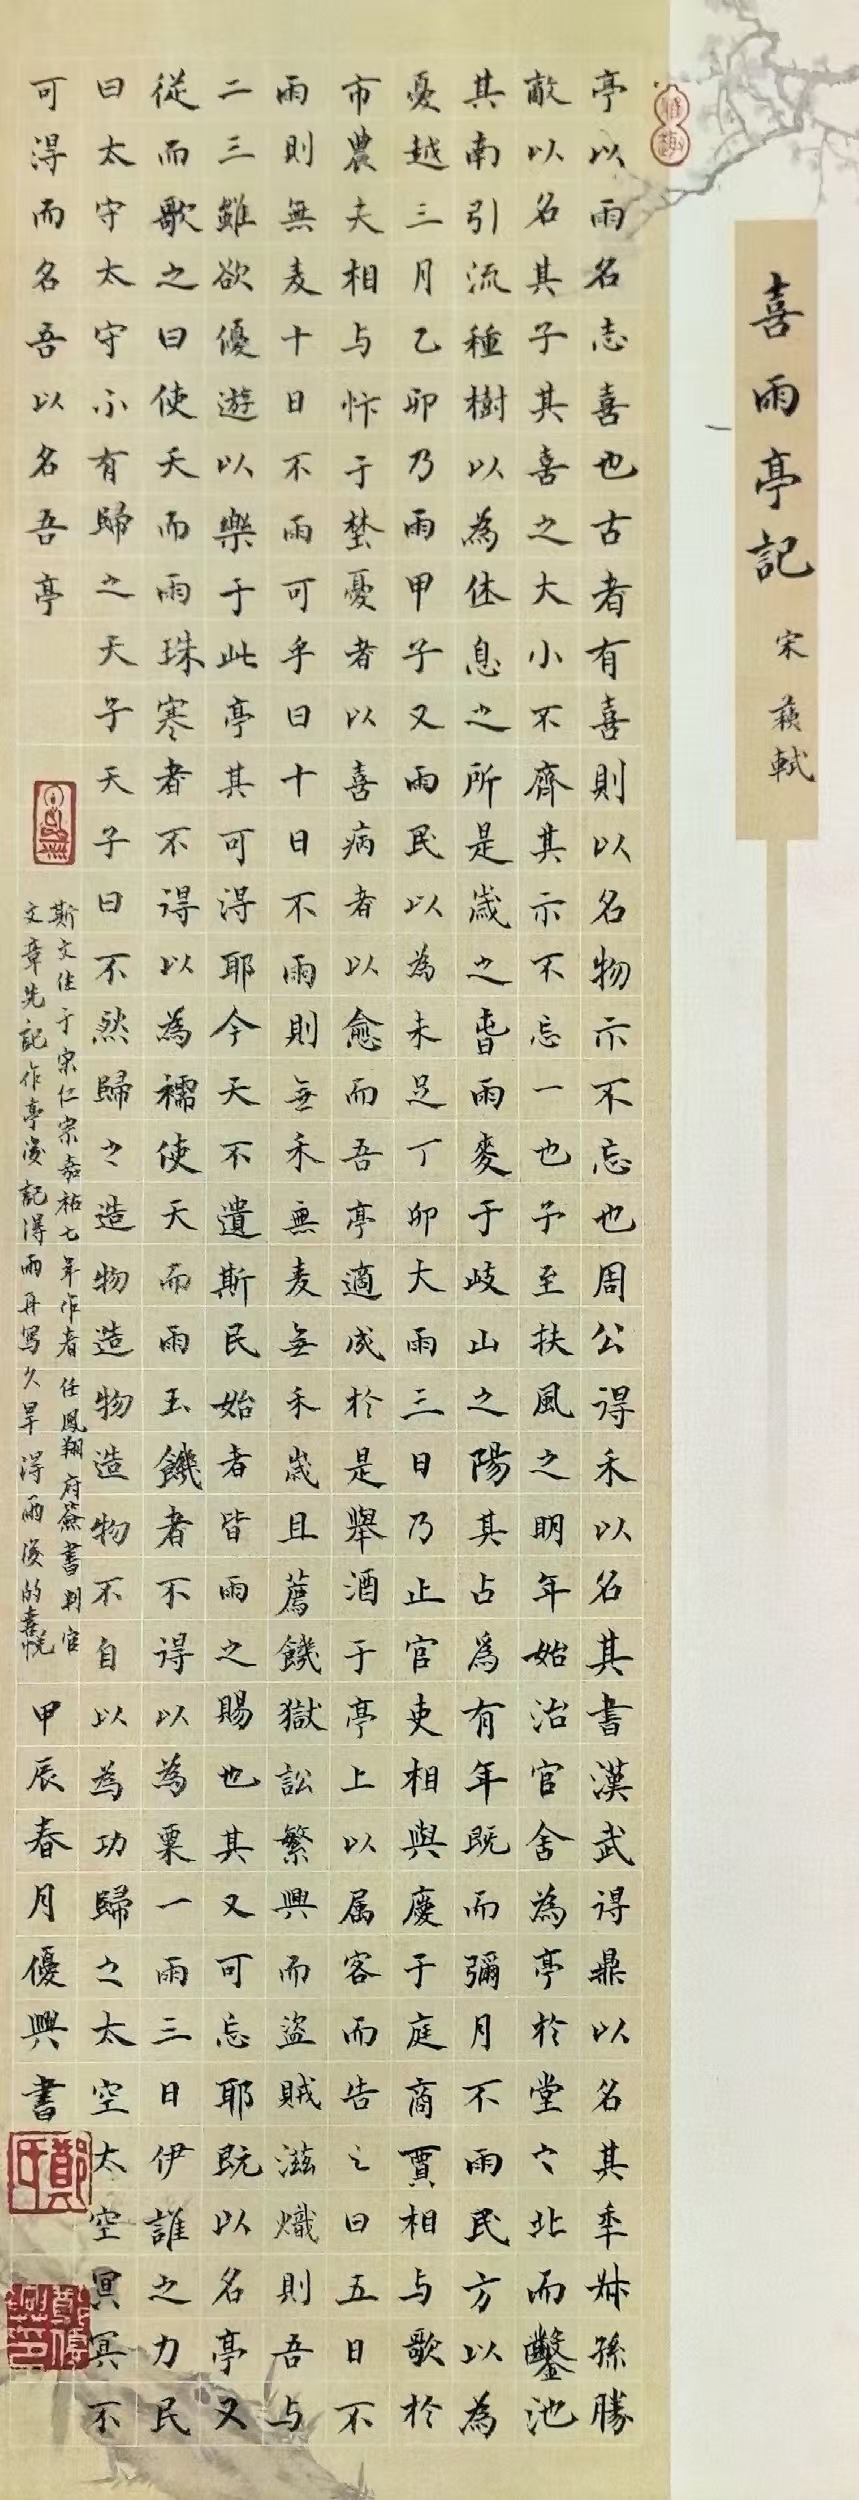 喜雨亭記
宋 蘇軾
亭以雨名志喜也古者有喜則以名物示不忘也周公得禾以名其書漢武得鼎以名其年叔孫勝
敵以名其子其喜之大小不齊其示不忘一也予至扶風之明年始治官舍為亭於堂之北而鑿池
其南引流種樹以為休息之所是歲之春雨麥于岐山之陽其占為有年既而彌月不雨民方以為
憂越三月乙卯乃雨甲子又雨民以為未足丁卯大雨三日乃止官吏相與慶于庭商賈相与歌於
市農夫相与忭于埜憂者以喜病者以愈而吾亭適成於是舉酒于亭上以属客而告之曰五日不
雨則無麦十日不雨可乎曰十日不雨則無禾無麦無禾歲且薦饑獄訟繁興而盜賊滋熾則吾与
二三雖欲優遊以樂于此亭其可得耶今天不遺斯民始者皆雨之賜也其又可忘耶既以名亭又
從而歌之曰使天而雨珠寒者不得以為襦使天而雨玉饑者不得以為粟一雨三日伊誰之力民
曰太守太守不有歸之天子天子曰不然歸之造物造物造物不自以為功歸之太空太空冥冥不
可得而名吾以名吾亭
斯文佳于宋仁宗嘉祐七年作者任鳳翔府簽書判官
文章先記作亭後記得雨再寫久旱得雨後的喜悅
甲辰春月優興書